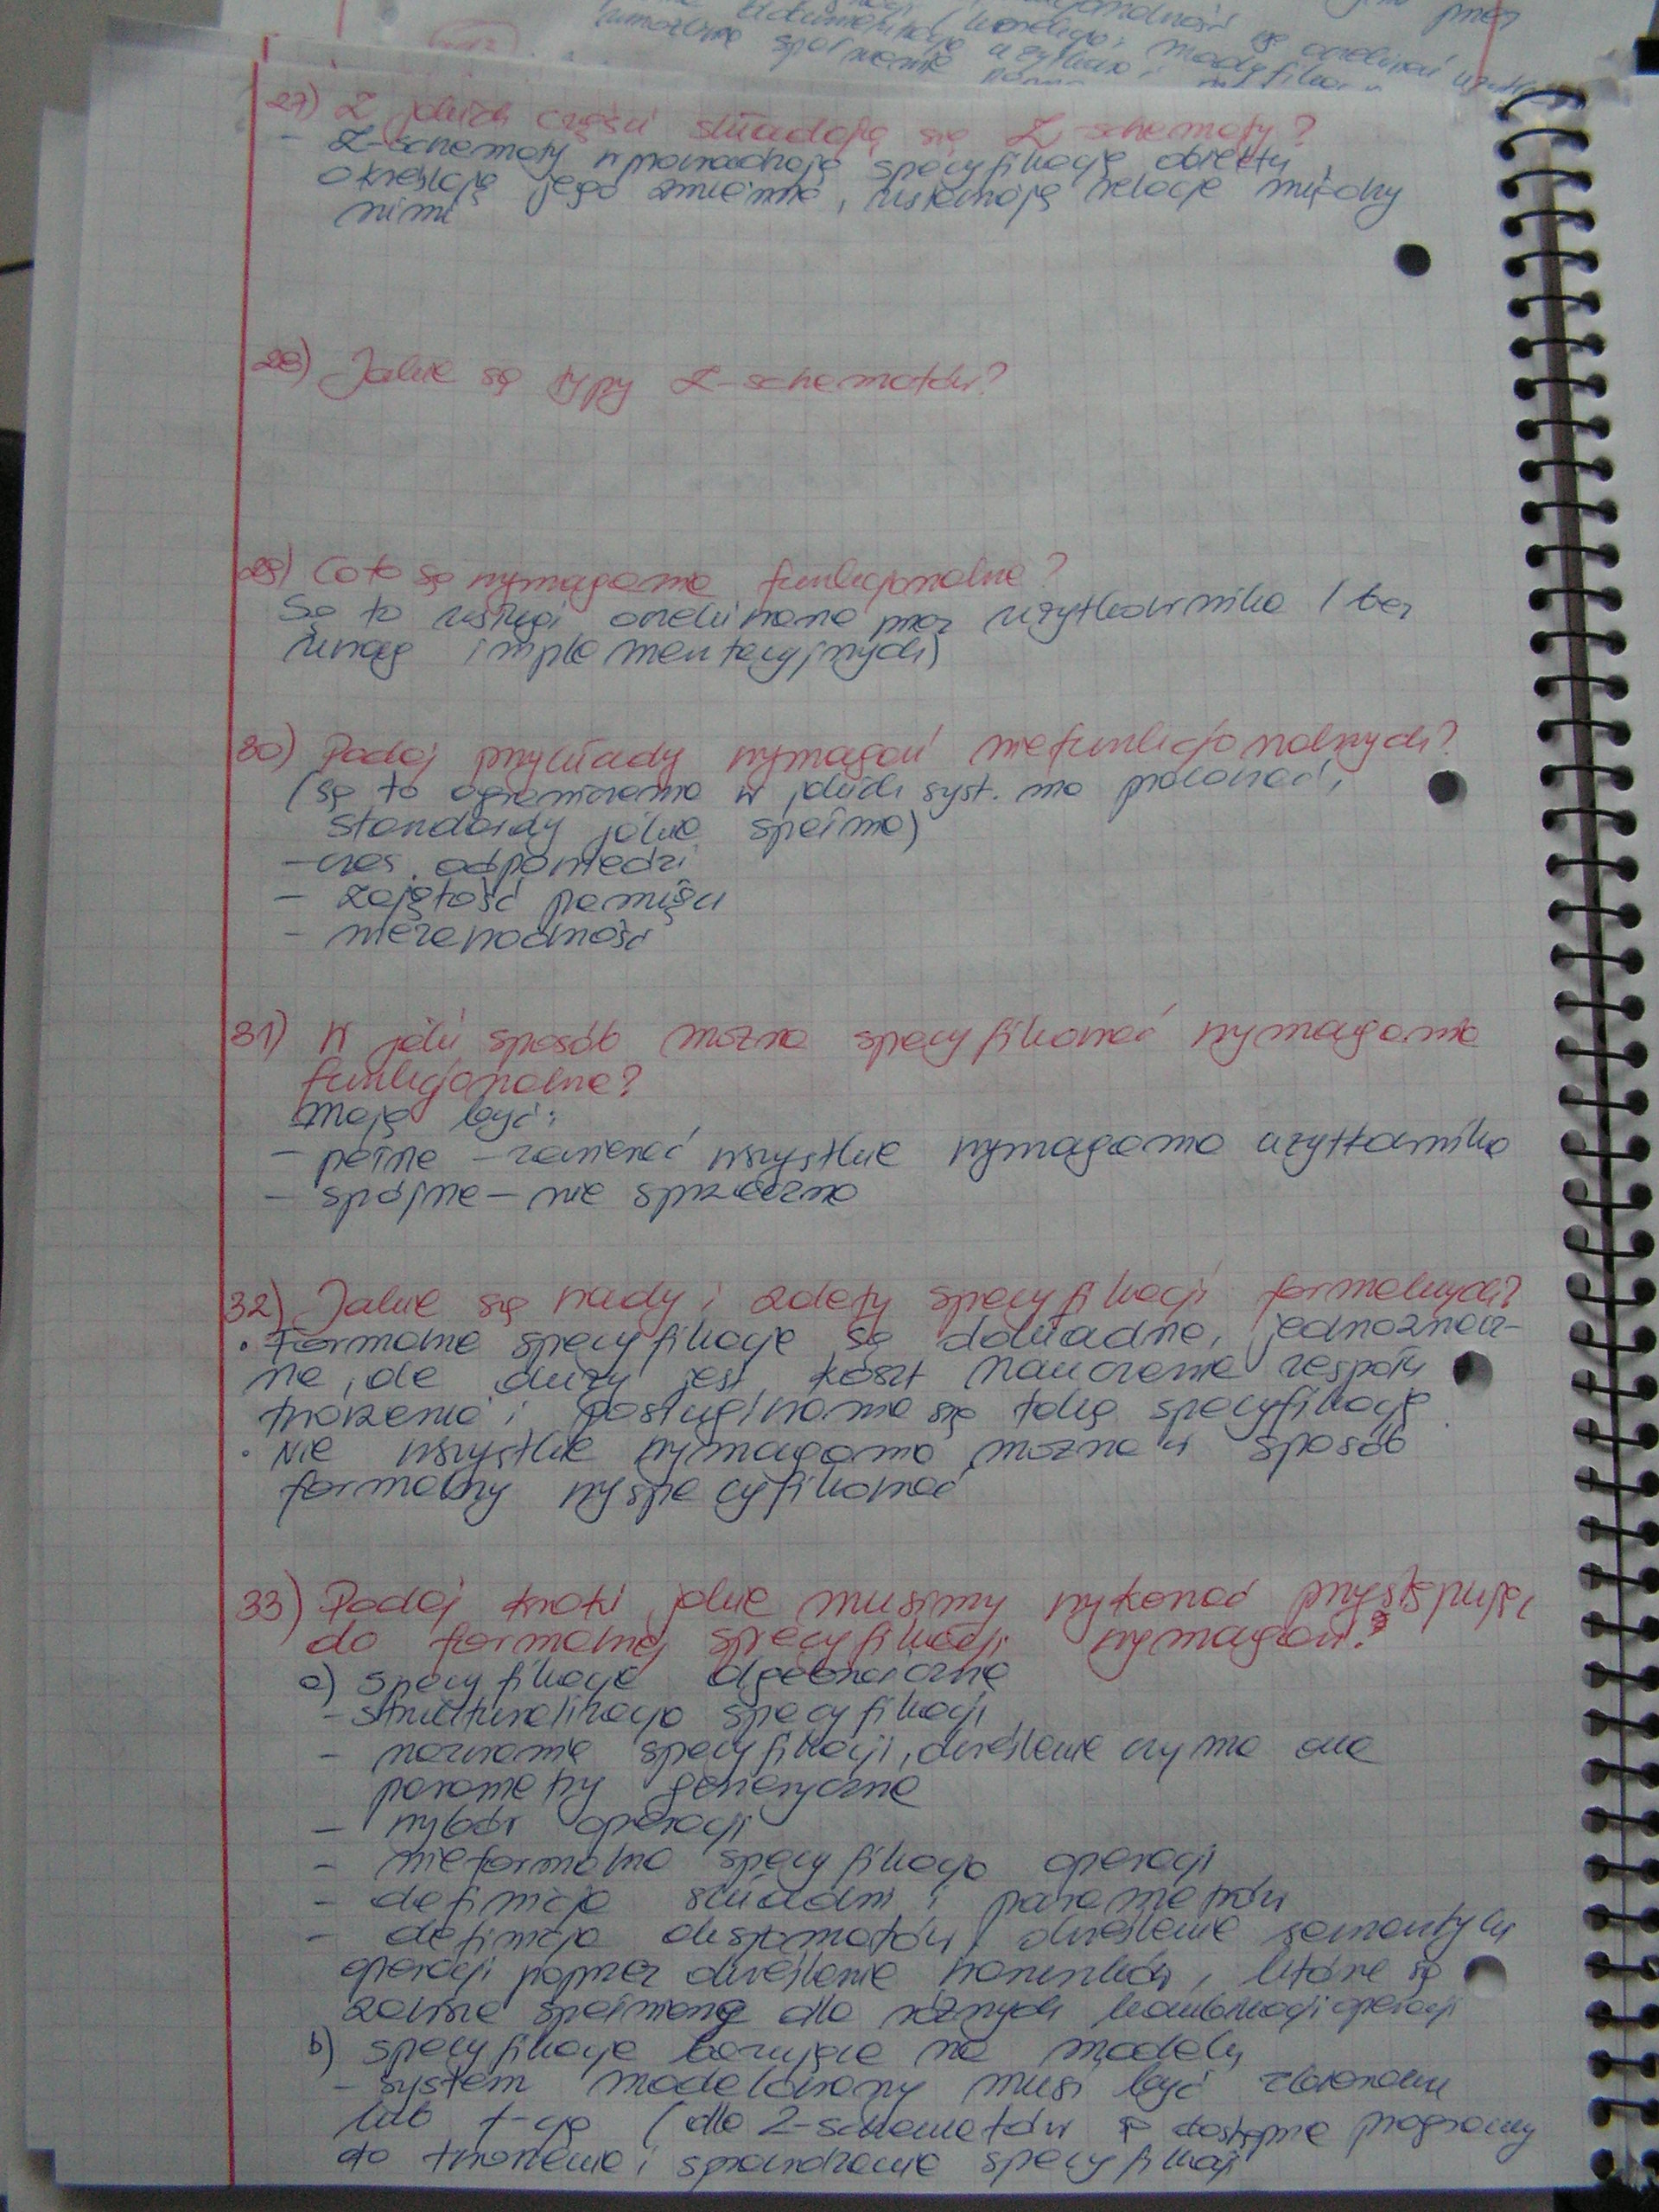 27) Z jakich części składają się Z-schematy?
- Z-schematy wprowadzają specyfikację obiektu,
określają jego zmienne, ustanawiają relacje między
nimi
28) Jakie są typy Z-schematów?
29) Co to są wymagania funkcjonalne?
Są to usługi oczekiwane przez użytkownika (bez
uwag implementacyjnych)
30) Podaj przykłady wymagań niefunkcjonalnych?
(są to ograniczenia w jakich syst. ma pracować,
standardy jakie spełnia)
- czas odpowiedzi
- zajętość pamięci
- niezawodność
31) W jaki sposób można specyfikować wymagania
funkcjonalne?
mają być:
- pełne - zawierać wszystkie wymagania użytkownika
- spójne - nie sprzeczne
32) Jakie są wady i zalety specyfikacji formalnych?
• Formalne specyfikacje są dokładne, jednoznacz-
ne, ale duży jest koszt nauczenia zespołu
tworzenia i posługiwania się taką specyfikacją.
• Nie wszystkie wymagania można w sposób
formalny wyspecyfikować
33) Podaj kroki jakie musimy wykonać przystępując
do formalnej specyfikacji wymagań?
a) specyfikacje algebraiczne
- strukturalizacja specyfikacji
- nazwanie specyfikacji, określenie czy ma ona
parametry generyczne
- wybór operacji
- nieformalna specyfikacja operacji
- definicja składni i parametrów
- definicja aksjomatów, określenie semantyki
operacji poprzez określenie warunków, które są
zawsze spełnione dla różnych kombinacji operacji
b) specyfikacje bazujące na modelu
- system modelowany musi być zbiorem
lub f-cją (dla Z-schematów są dostępne programy
do tworzenia i sprawdzania specyfikacji